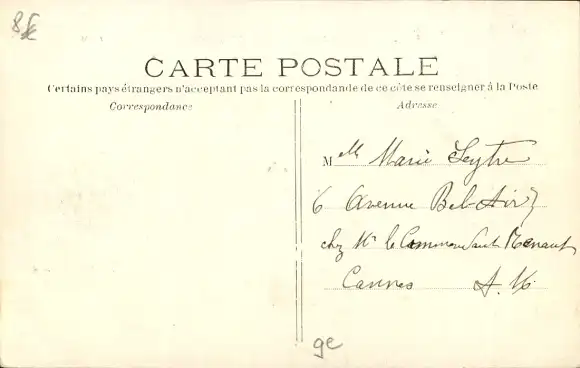 CARTE POSTALE
Certains pays étrangers n'acceptant pas la correspondande de ce côte se renseigner à la Poste
Correspondance
Adresse
Melle Marie Seytre
6 Avenue Bel-Air
chez Mr le Commandant Renault
Cannes A. M.
ge